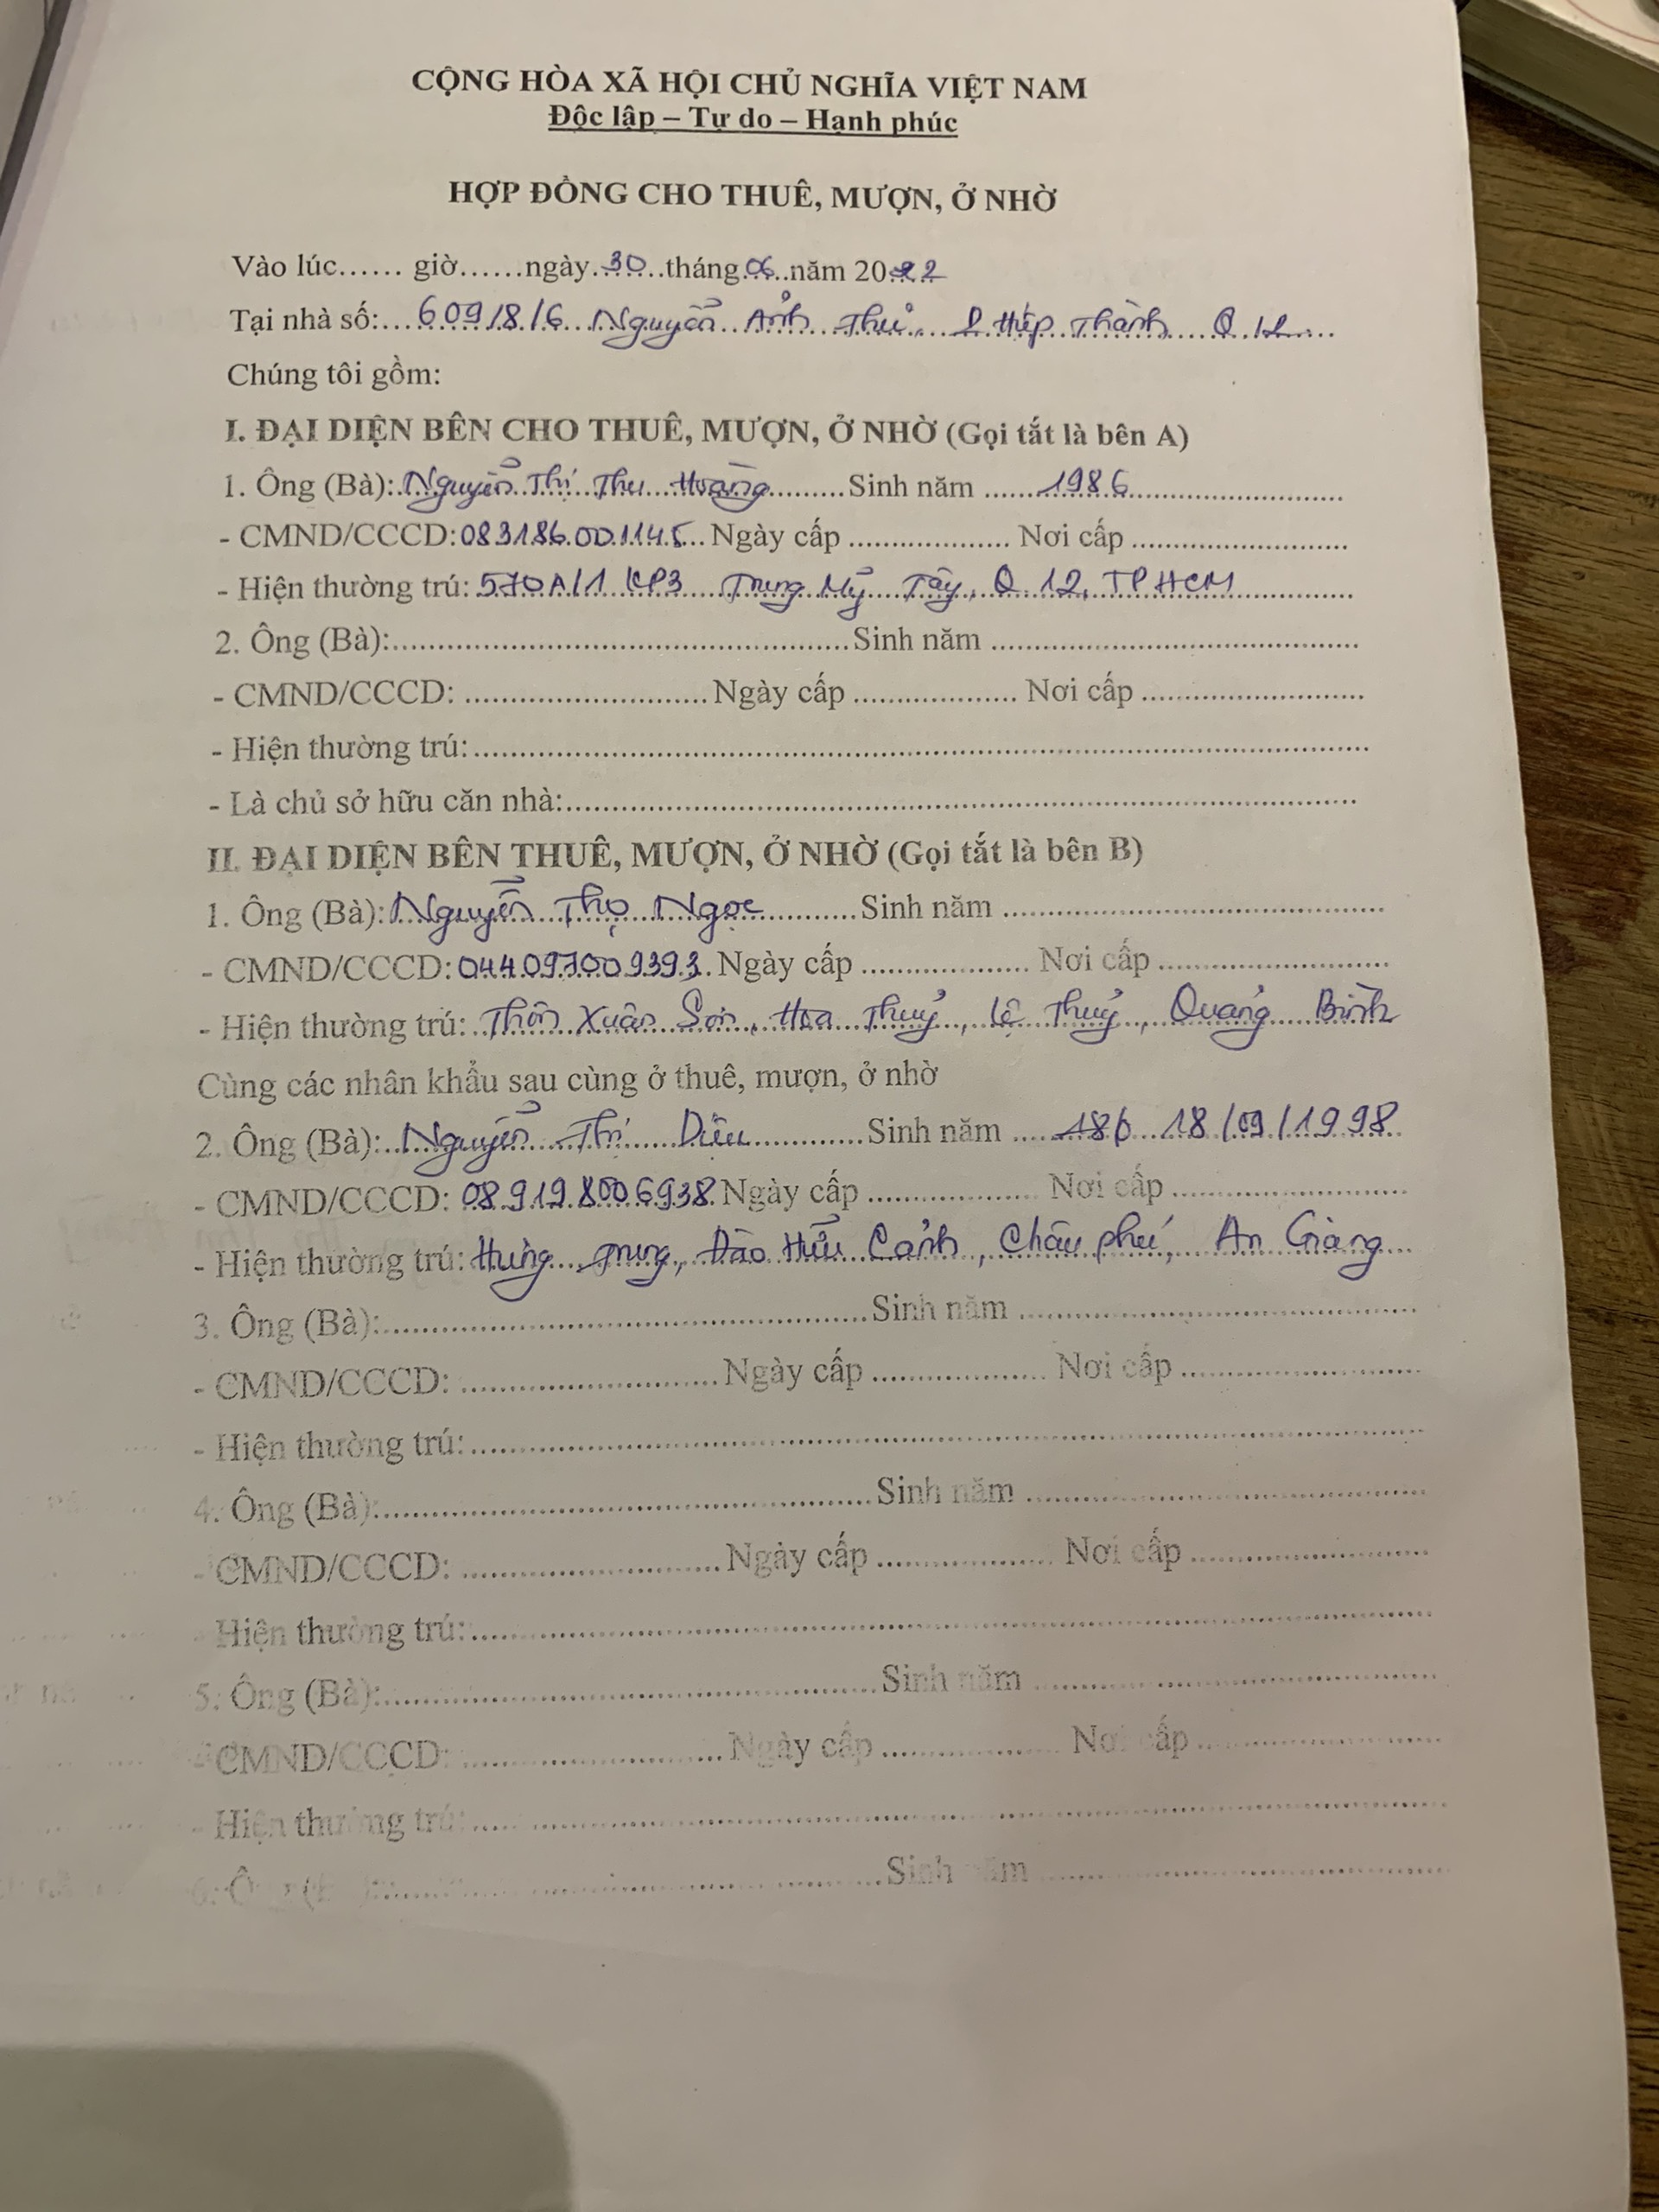 CỘNG HÒA XÃ HỘI CHỦ NGHĨA VIỆT NAM
Độc lập – Tự do – Hạnh phúc
HỢP ĐỒNG CHO THUÊ, MƯỢN, Ở NHỜ
Vào lúc...... giờ......ngày..30..tháng.06..năm 2022
Tại nhà số:...609/8/6 Nguyễn Ảnh Thủ, P Hiệp Thành Q 12...
Chúng tôi gồm:
I. ĐẠI DIỆN BÊN CHO THUÊ, MƯỢN, Ở NHỜ (Gọi tắt là bên A)
1. Ông (Bà): Nguyễn Thị Thu Hoàng.........Sinh năm .......1986........................
- CMND/CCCD: 083186001145... Ngày cấp .................. Nơi cấp ........................
- Hiện thường trú: 570A/1 KP3 Trung Mỹ Tây, Q 12, TP HCM
2. Ông (Bà):..................................................Sinh năm .........................................
- CMND/CCCD: ...........................Ngày cấp .................. Nơi cấp .........................
- Hiện thường trú:....................................................................................................
- Là chủ sở hữu căn nhà:........................................................................................
II. ĐẠI DIỆN BÊN THUÊ, MƯỢN, Ở NHỜ (Gọi tắt là bên B)
1. Ông (Bà): Nguyễn Thọ Ngọc..........Sinh năm .........................................
- CMND/CCCD: 044097009393. Ngày cấp .................. Nơi cấp .........................
- Hiện thường trú: Thôn Xuân Sơn, Hoa Thuỷ, Lệ Thuỷ, Quảng Bình
Cùng các nhân khẩu sau cùng ở thuê, mượn, ở nhờ
2. Ông (Bà): Nguyễn Thị Diệu............Sinh năm ..... 18/09/1998
- CMND/CCCD: 089198006938 Ngày cấp .................. Nơi cấp .........................
- Hiện thường trú: Hưng Trung, Đào Hữu Cảnh, Châu phú, An Giang
3. Ông (Bà):....................................................Sinh năm ...........................................
- CMND/CCCD: ............................Ngày cấp ................... Nơi cấp .........................
- Hiện thường trú:....................................................................................................
4. Ông (Bà):....................................................Sinh năm ...........................................
- CMND/CCCD: ............................Ngày cấp ................... Nơi cấp .........................
- Hiện thường trú:....................................................................................................
5. Ông (Bà):....................................................Sinh năm ...........................................
- CMND/CCCD: ............................Ngày cấp ................... Nơi cấp .........................
- Hiện thường trú:....................................................................................................
6. Ông (Bà):....................................................Sinh năm ...........................................